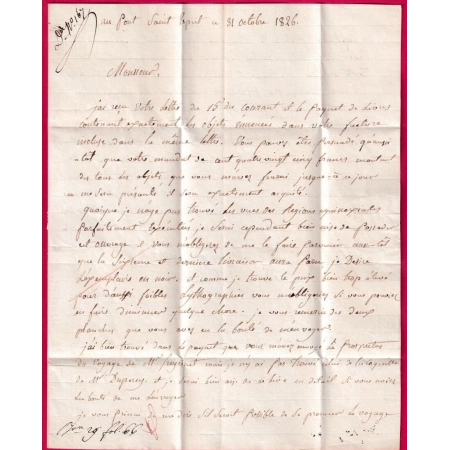 au Pont Saint Esprit ce 31 octobre 1826.
Monsieur,
j'ai reçu votre lettre du 15 du courant et le paquet de livres
contenant exactement les objets énoncés dans votre facture
incluse dans la même lettre. Vous pouvez être persuadé qu'aussi
tôt que votre mandat de cent quatre vingt cinq francs montant
de tous les objets que vous m'avez fourni jusqu'à ce jour
me sera présenté il sera exactement acquitté.
quoique je n'aye pas trouvé les vues des
parfaitement je serai cependant bien aise de posseder
cet ouvrage et vous m'obligerez de me le faire parvenir aussi tot
que la sixieme et derniere livraison aura paru je desire
l'exemplaire en noir. et comme je trouve le prix bien trop élevé
pour d'aussi foibles lythographies vous m'obligerez si vous pouvez
en faire diminuer quelque chose. je vous remercie des deux
planches que vous avez eu la bonté de m'envoyer.
j'ai bien trouvé dans le paquet que vous m'avez envoyé le prospectus
du voyage de Mr mais je n'y ai pas trouvé celui de
de Mr Duperrey et je serai bien aise de en detail si vous avez
la bonté de me l'envoyer
je vous prie de me dire s'il seroit possible de se procurer le voyage